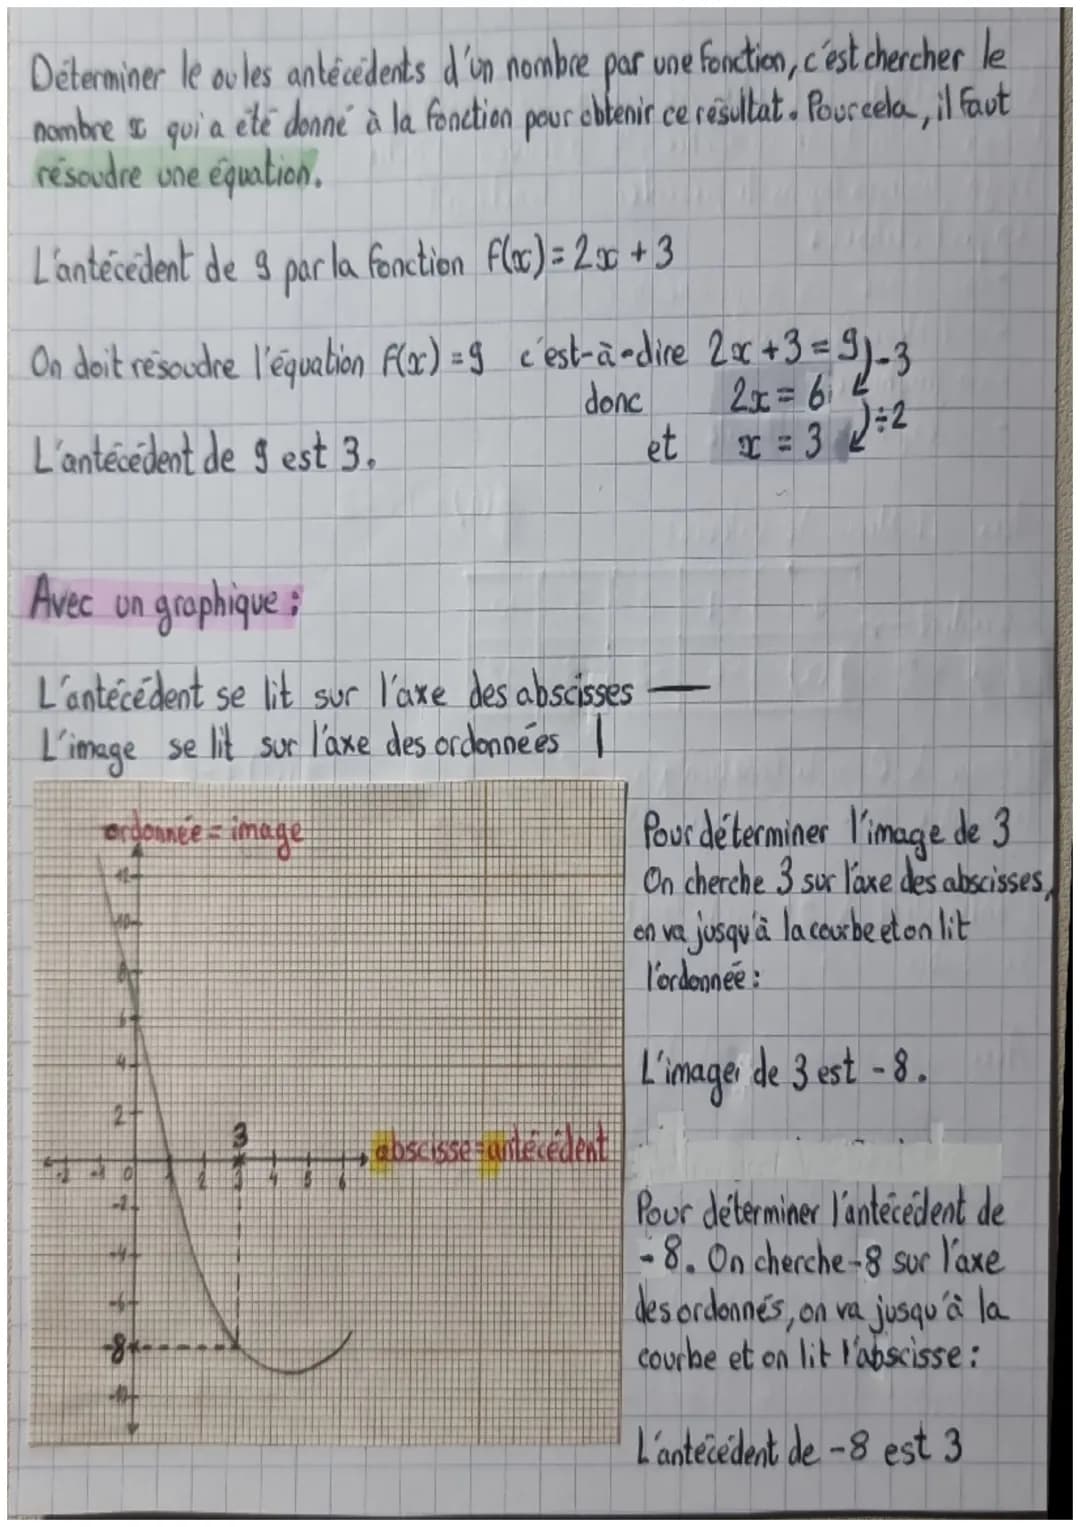 Déterminer le ou les antécédents d'un nombre par une fonction, c'est chercher le
nombre x qui a été donné à la fonction pour obtenir ce résultat. Pour cela, il faut
résoudre une équation.
L'antécédent de 9 par la fonction f(x) = 2x + 3
On doit résoudre l'équation f(x) = 9 c'est-à-dire 2x + 3 = 9 -3
donc 2x = 6 ÷2
et x = 3
L'antécédent de 9 est 3.
Avec un graphique :
L'antécédent se lit sur l'axe des abscisses —
L'image se lit sur l'axe des ordonnées |
ordonnée = image
12
10
8
6
4
2
3
abscisse = antécédent
-2 -1 0 1 2 3 4 5 6
-2
-4
-6
-8
-10
Pour déterminer l'image de 3
On cherche 3 sur l'axe des abscisses,
on va jusqu'à la courbe et on lit
l'ordonnée :
L'image de 3 est -8.
Pour déterminer l'antécédent de
-8. On cherche -8 sur l'axe
des ordonnés, on va jusqu'à la
courbe et on lit l'abscisse :
L'antécédent de -8 est 3